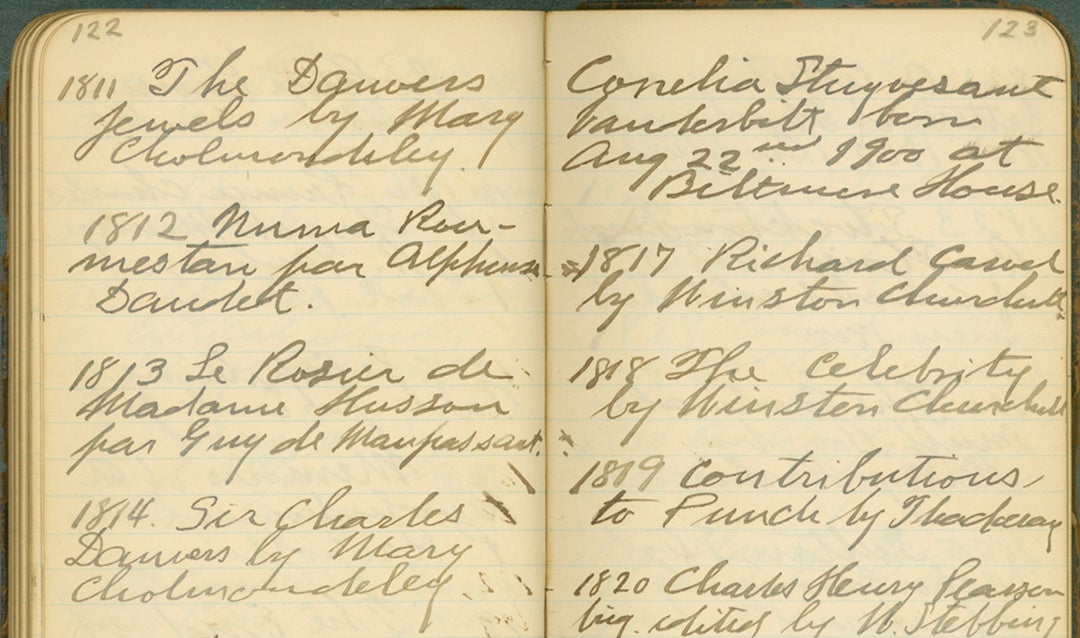 122
1811 The Danvers
Jewels by Mary
Cholmondeley.
1812 Numa Rou-
mestan par Alphonse
Daudet.
1813 Le Rosier de
Madame Husson
par Guy de Maupassant.
1814. Sir Charles
Danvers by Mary
Cholmondeley.
123
Cornelia Stuyvesant
Vanderbilt, born
Aug 22nd 1900 at
Biltmore House.
1817 Richard Carvel
by Winston Churchill.
1818 The Celebrity
by Winston Churchill
1819 Contributions
to Punch by Thackeray
1820 Charles Henry Pearson
big. edited by W. Stebbing